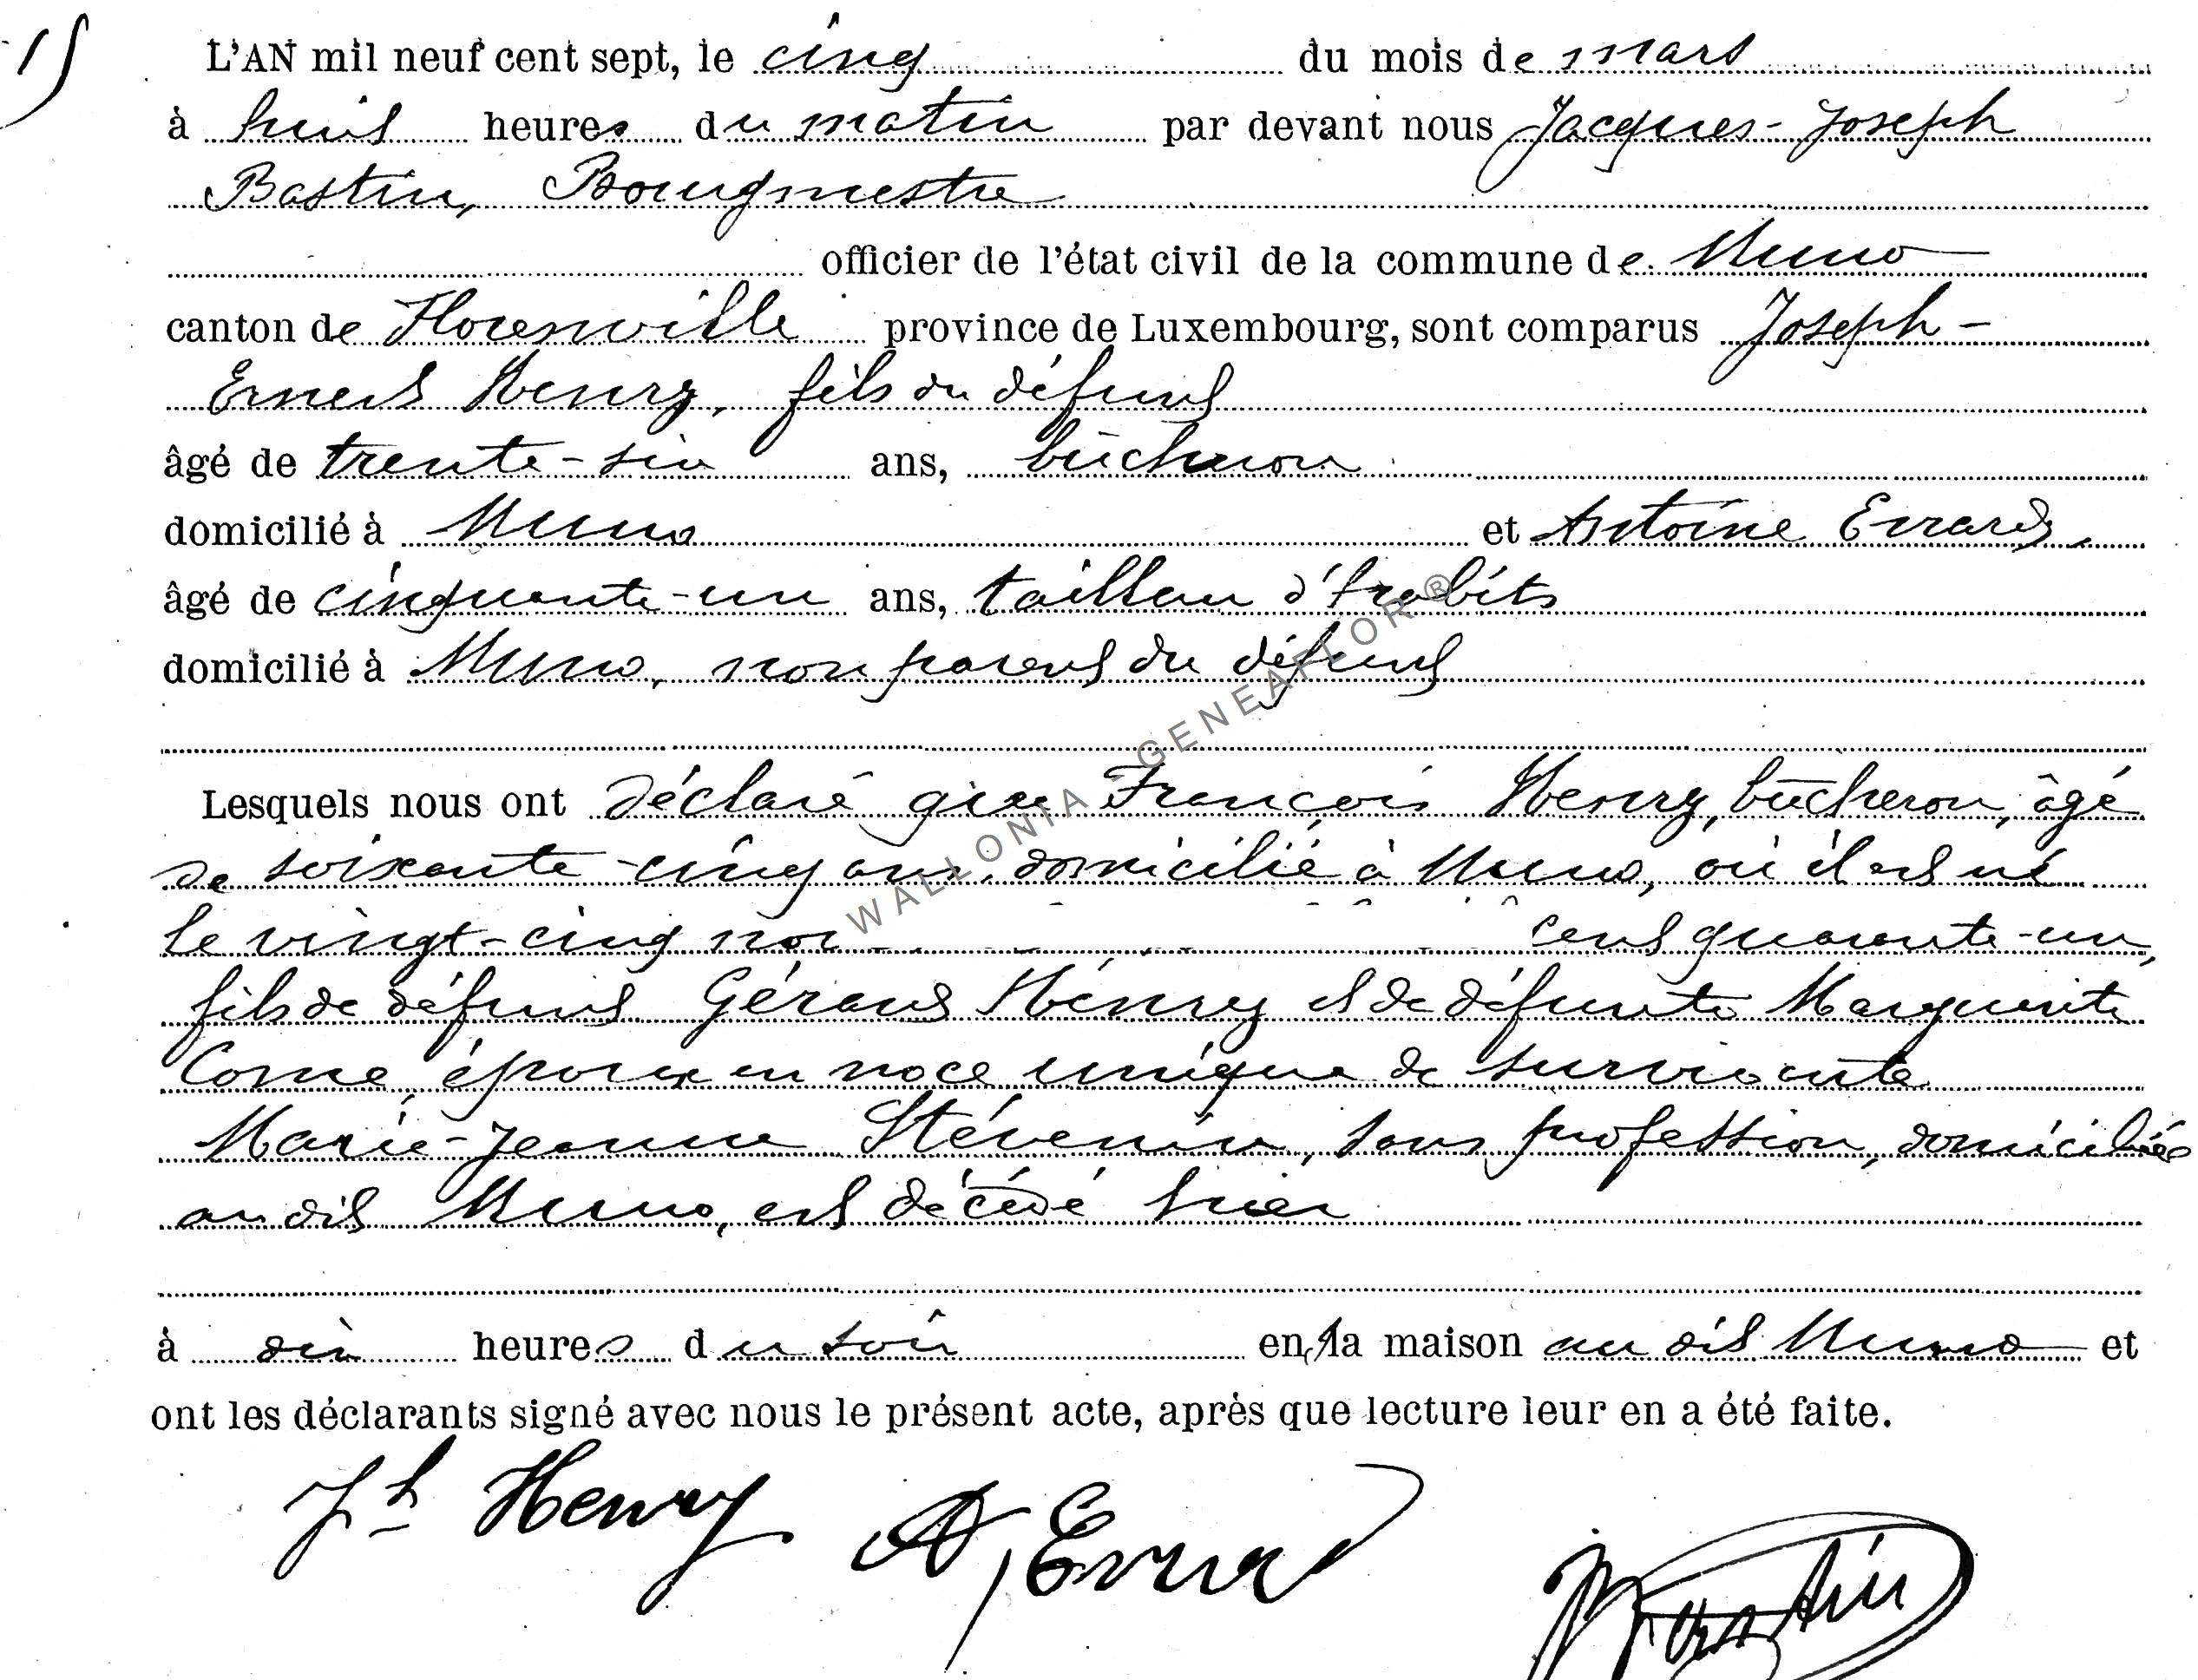 15
L'AN mil neuf cent sept, le cinq du mois de mars
à huit heures du matin par devant nous Jacques-Joseph
Bastin, Bourgmestre
officier de l'état civil de la commune de Muno
canton de Florenville province de Luxembourg, sont comparus Joseph-
Ernest Henry, fils du défunt
âgé de trente-six ans, bûcheron
domicilié à Muno et Antoine Errard,
âgé de cinquante-un ans, tailleur d'habits
domicilié à Muno, non parent du défunt
Lesquels nous ont déclaré que François Henry, bûcheron, âgé
de soixante-cinq ans, domicilié à Muno, où il est né
le vingt-cinq cent quarante-un,
fils de défunt Gérard Henry et de défunte Marguerite
Corne, époux en noce unique de survivante
Marie-Jeanne Stévenin, sans profession, domiciliée
au dit Muno, est décédé hier
à dix heures du soir en sa maison au dit Muno et
ont les déclarants signé avec nous le présent acte, après que lecture leur en a été faite.
Jh Henry A, Errard Bastin
WALLONIA - GENEAFLOR ®